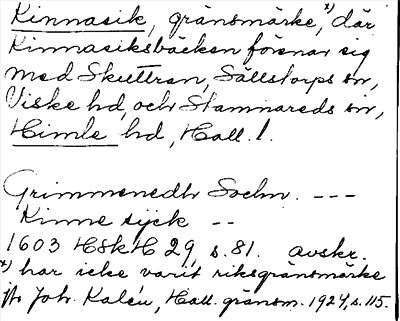 Kinnasik, gränsmärke,*) där
Kinnasiksbäcken förenar sig
med Skuttran, Sällstorps sn,
Viske hd, och Stamnareds sn,
Himle hd, Hall. l.
Grimmenedh Sochn. ---
Kinne sijck --
1603 HSkH 29, s. 81. avskr.
*) har icke varit riksgränsmärke
jfr Joh. Kalén, Hall. gränsm. 1924, s. 115.